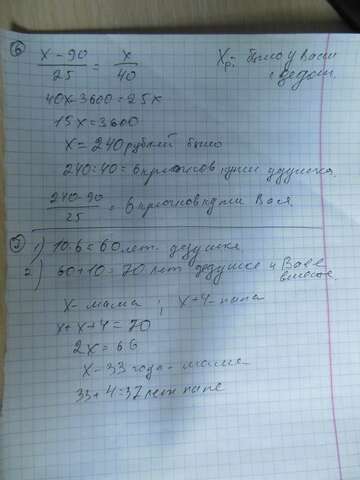 6
x - 90 / 25 = x / 40
Xр - было у Васи
с дедом.
40x-3600=25x
15x=3600
x=240 рублей было
240:40=6 крючков купил дедушка.
240-90 / 25 = 6 крючков купил Вася
7 1) 10·6=60 лет дедушке
2) 60+10=70 лет дедушке и Васе
вместе.
x - мама ; x+4 - папа
x+x+4=70
2x=66
x-33 года - маме
33+4=37 лет папе